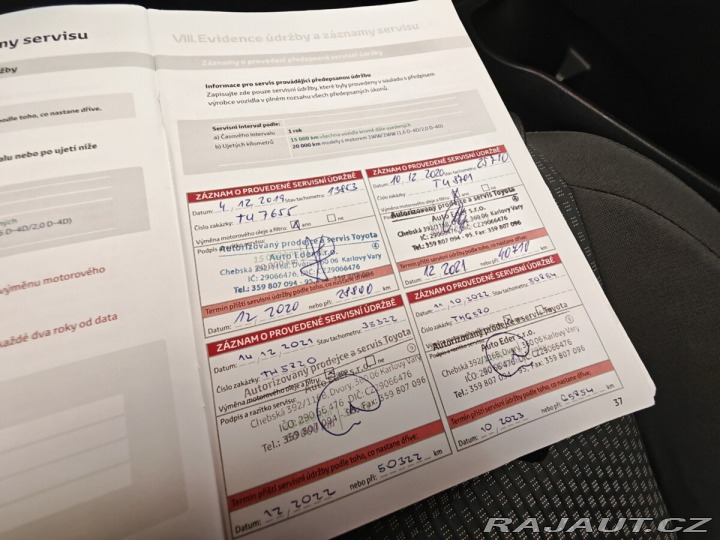 ny servisu
žby
podle toho, co nastane dříve.
alu nebo po ujetí níže
5 D-4D/2,0 D-4D)
výměnu motorového
každé dva roky od data
VIII. Evidence údržby a záznamy servisu
Záznamy o provedení předepsané servisní údržby
Informace pro servis provádějící předepsanou údržbu
Zapisujte zde pouze servisní údržby, které byly provedeny v souladu s předpisem
výrobce vozidla v plném rozsahu všech předepsaných úkonů.
Servisní interval podle:
a) Časového intervalu 1 rok
b) Ujetých kilometrů 15 000 km všechna vozidla kromě dále uvedených
20 000 km modely s motorem 1WW/2WW (1,6 D-4D/2,0 D-4D)
ZÁZNAM O PROVEDENÉ SERVISNÍ ÚDRŽBĚ
Datum: 4. 12. 2019 Stav tachometru: 13863
Číslo zakázky: TH7655
Výměna motorového oleje a filtru: ano ne
Podpis a
Autorizovaný prodejce a servis Toyota
Auto Eder s.r.o.
Chebská 392/116B, Dvory, 360 06 Karlovy Vary
IČ: 29066476,
Tel.: 359 807 094 - 95, Fax: 359 807 096
Termín příští servisní údržby podle toho, co nastane dříve:
Datum: 12, 2020 nebo při: 28800 km
ZÁZNAM O PROVEDENÉ SERVISNÍ ÚDRŽBĚ
Datum: 10. 12. 2020 Stav tachometru: 25710
Číslo zakázky: TH8701
Výměna motorového oleje a filtru: ano ne
Autorizovaný prodejce a servis Toyota
Auto Eder s.r.o.
Chebská 392/116B, Dvory, 360 06 Karlovy Vary
IČ: 29066476,
Tel.: 359 807 094 - 95, Fax: 359 807 096
Termín příští servisní údržby podle toho, co nastane dříve:
Datum: 12 2021 nebo při: 40710 km
ZÁZNAM O PROVEDENÉ SERVISNÍ ÚDRŽBĚ
Datum: 14. 12. 2021 Stav tachometru: 35322
Číslo zakázky: TH5720
Autorizovaný prodejce a servis Toyota
Výměna motorového oleje a filtru: ano ne
Auto Eder s.r.o.
Podpis a razítko servisu:
Chebská 392/116B, Dvory, 360 06 Karlovy Vary
IČO: 290 66 476, DIČ: CZ29066476
Tel.: 359 807 094 Fax: 359 807 096
Termín příští servisní údržby podle toho, co nastane dříve:
Datum: 12, 2022 nebo při: 50322 km
ZÁZNAM O PROVEDENÉ SERVISNÍ ÚDRŽBĚ
Datum: 11. 10. 2022 Stav tachometru: 50854
Číslo zakázky:
Autorizovaný prodejce a servis Toyota
Auto Eder s.r.o.
Chebská 392/116B, Dvory, 360 06 Karlovy Vary
IČO: 290 66 476, DIČ: CZ29066476
Tel.: 359 807 094 Fax: 359 807 096
Termín příští servisní údržby podle toho, co nastane dříve:
Datum: 10, 2023 nebo při: 65854 km
37
RAJAUT.CZ